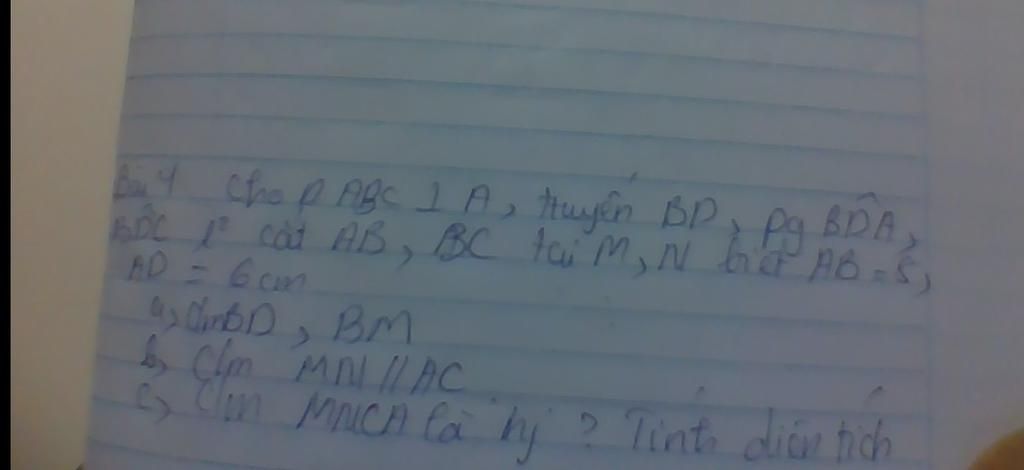 Bài 4 Cho Δ ABC ⊥ A, tuyến BD, pg BD̂A,
BD̂C lº cắt AB, BC tại M, N biết AB = 5,
AD = 6cm
a, BD, BM
b, C/m MN // AC
c, C/m MNCA là hj ? Tính diện tích